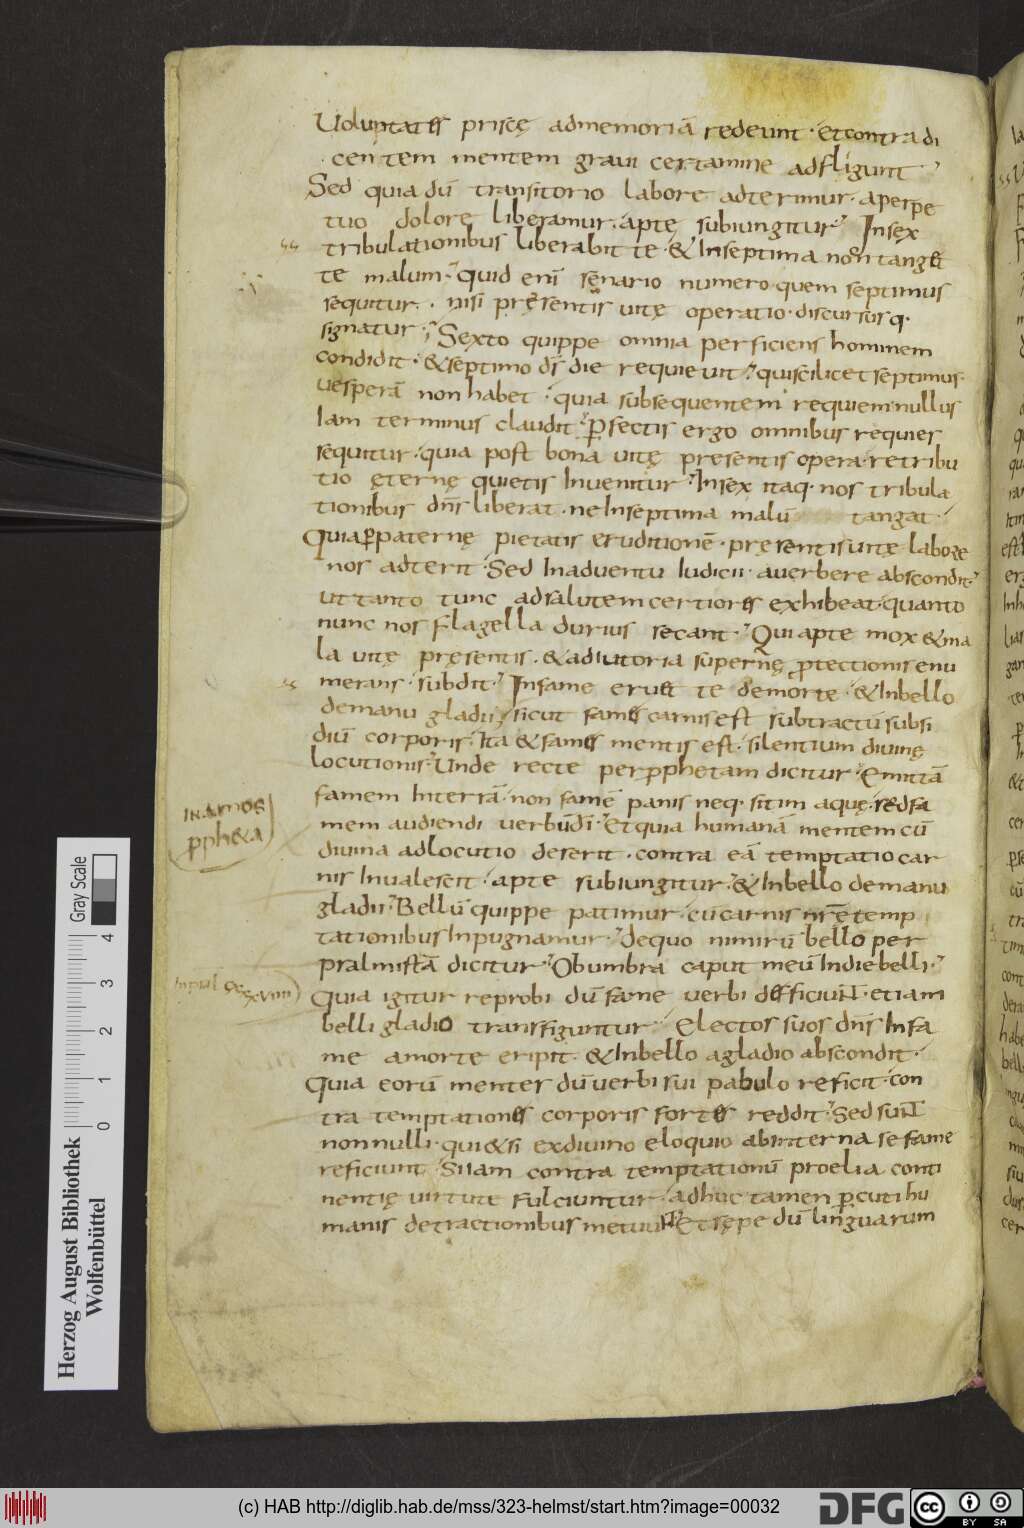 Uoluptates priscę admemoriā redeunt · etcontradi
centem mentem graui certamine adfligunt·
Sed quia dū transitorio labore adterimur · aperpe
tuo dolore liberamur · apte subiungitur Insex
tribulationibus liberabit te · & Inseptima non tang&
te malum· quid enī senario numero quem septimus
sequitur · nisi pręsentis uitę operatio · discursusq·
signatur · Sexto quippe omnia perficiens hominem
condidit · &septimo dś die requieuit quiscilicet septimus·
uesperā non habet · quia subsequentem requiem nullus
Iam terminus claudit ꝑfectis ergo omnibus requies
sequitur · quia post bona uitę presentis opera · retribu
tio ęternę quietis Inuenitur Insex itaq· nos tribula
tionibus dn̄s liberat · neInseptima malū tangat ·
Quia ꝑpaternę pietatis eruditionē · pręsentis uitę labore
nos adterit · Sed Inaduentu Iudicii · auerbere abscondit·
ut tanto tunc adsalutem certiores exhibeat · quanto
nunc nos flagella durius secant · Qui apte mox &ma
la uitę pręsentis · &adiutoria supernę ꝓtectionis enu
merans · subdit· Infame eru& te demorte · &Inbello
demanu gladii sicut fames carnis est subtractū subsi
diū corporis · Ita &fames mentis est · silentium diuinę
locutionis · Unde recte per ꝓphetam dicitur · Emittā
famem Interrā · non famē panis neq· sitim aquę · sedfa
mem audiendi uerbūdī · Etquia humanā mentem cū
diuina adlocutio deserit · contra eā temptatio car
nis Inualescit · apte subiungitur · &Inbello demanu
gladii · Bellū quippe patimur · cū carnis nr̄ę temp
tationibus Inpugnamur · dequo nimirū bello per
psalmistā dicitur · Obumbra caput meū Indie belli ·
Quia igitur reprobi dū fame uerbi deficiunt · etiam
belli gladio transfiguntur · Electos suos dn̄s Infa
me amorte eripit · &Inbello agladio abscondit ·
Quia eorū mentes dū uerbi sui pabulo reficit · con
tra temptationes corporis fortes reddit · Sed sunt
nonnulli · qui &si exdiuino eloquio abinterna se fame
reficiunt · Siiam contra temptationū proelia conti
nentię uirtute fulciuntur · adhuc tamen ꝑcuti hu
manis detractionibus metuunt Et sępe dū linguarum
IN AMOS
ꝓph&a
Herzog August Bibliothek
Wolfenbüttel
Gray Scale
0 1 2 3 4
(c) HAB http://diglib.hab.de/mss/323-helmst/start.htm?image=00032
DFG
CC BY SA